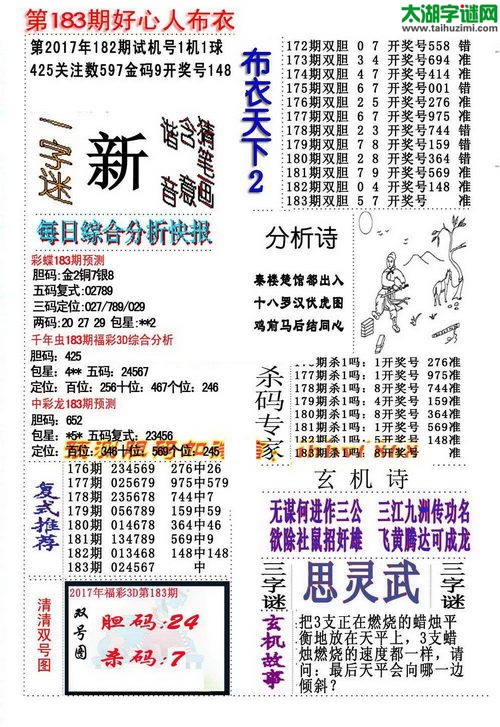 第183期好心人布衣
太湖字谜网
www.taihuzimi.com
第2017年182期试机号1机1球
425关注数597金码9开奖号148
一字迷
新
猜笔画
含意
谐音
布衣天下2
172期双胆 0 7 开奖号558 错
173期双胆 3 4 开奖号694 准
174期双胆 4 7 开奖号414 准
175期双胆 6 7 开奖号001 错
176期双胆 2 5 开奖号276 准
177期双胆 6 7 开奖号975 准
178期双胆 2 3 开奖号744 错
179期双胆 7 8 开奖号159 错
180期双胆 2 8 开奖号364 错
181期双胆 7 9 开奖号569 准
182期双胆 0 4 开奖号148 准
183期双胆 5 7 开奖号 准
每日综合分析快报
彩蝶183期预测
胆码:金2铜7银8
五码复式:02789
三码定位:027/789/029
两码: 20 27 29 包星:**2
千年虫183期福彩3D综合分析
胆码: 425
包星: 4** 五码: 24567
定位: 百位: 256十位: 467个位: 246
中彩龙183期预测
胆码: 652
包星: *5* 五码: 23456
定位: 百位: 346十位: 569个位: 245
分析诗
秦楼楚馆都出入
十八罗汉伏虎图
鸡前马后结同心
杀码专家
...期杀1吗: 1开奖号 276准
177期杀1吗: 1开奖号 975准
178期杀1吗: 8开奖号 744准
179期杀1吗: 4开奖号 159准
180期杀1吗: 9开奖号 364准
181期杀1吗: 1开奖号 569准
182期杀1吗: 5开奖号 148准
183期杀1吗: 8开奖号 准
复式推荐
176期 234569 276中26
177期 025679 975中579
178期 235678 744中7
179期 056789 159中59
180期 014678 364中46
181期 134789 569中9
182期 013468 148中148
183期 024567 中
玄机诗
无谋何进作三公 三江九洲传功名
欲除社鼠招奸雄 飞黄腾达可成龙
清清双号图
2017年福彩3D第183期
双号图
胆码:24
杀码:7
三字谜
思灵武
三字谜
玄机故事
把3支正在燃烧的蜡烛平
衡地放在天平上，3支蜡
烛燃烧的速度都一样，请
问：最后天平会向哪一边
倾斜？